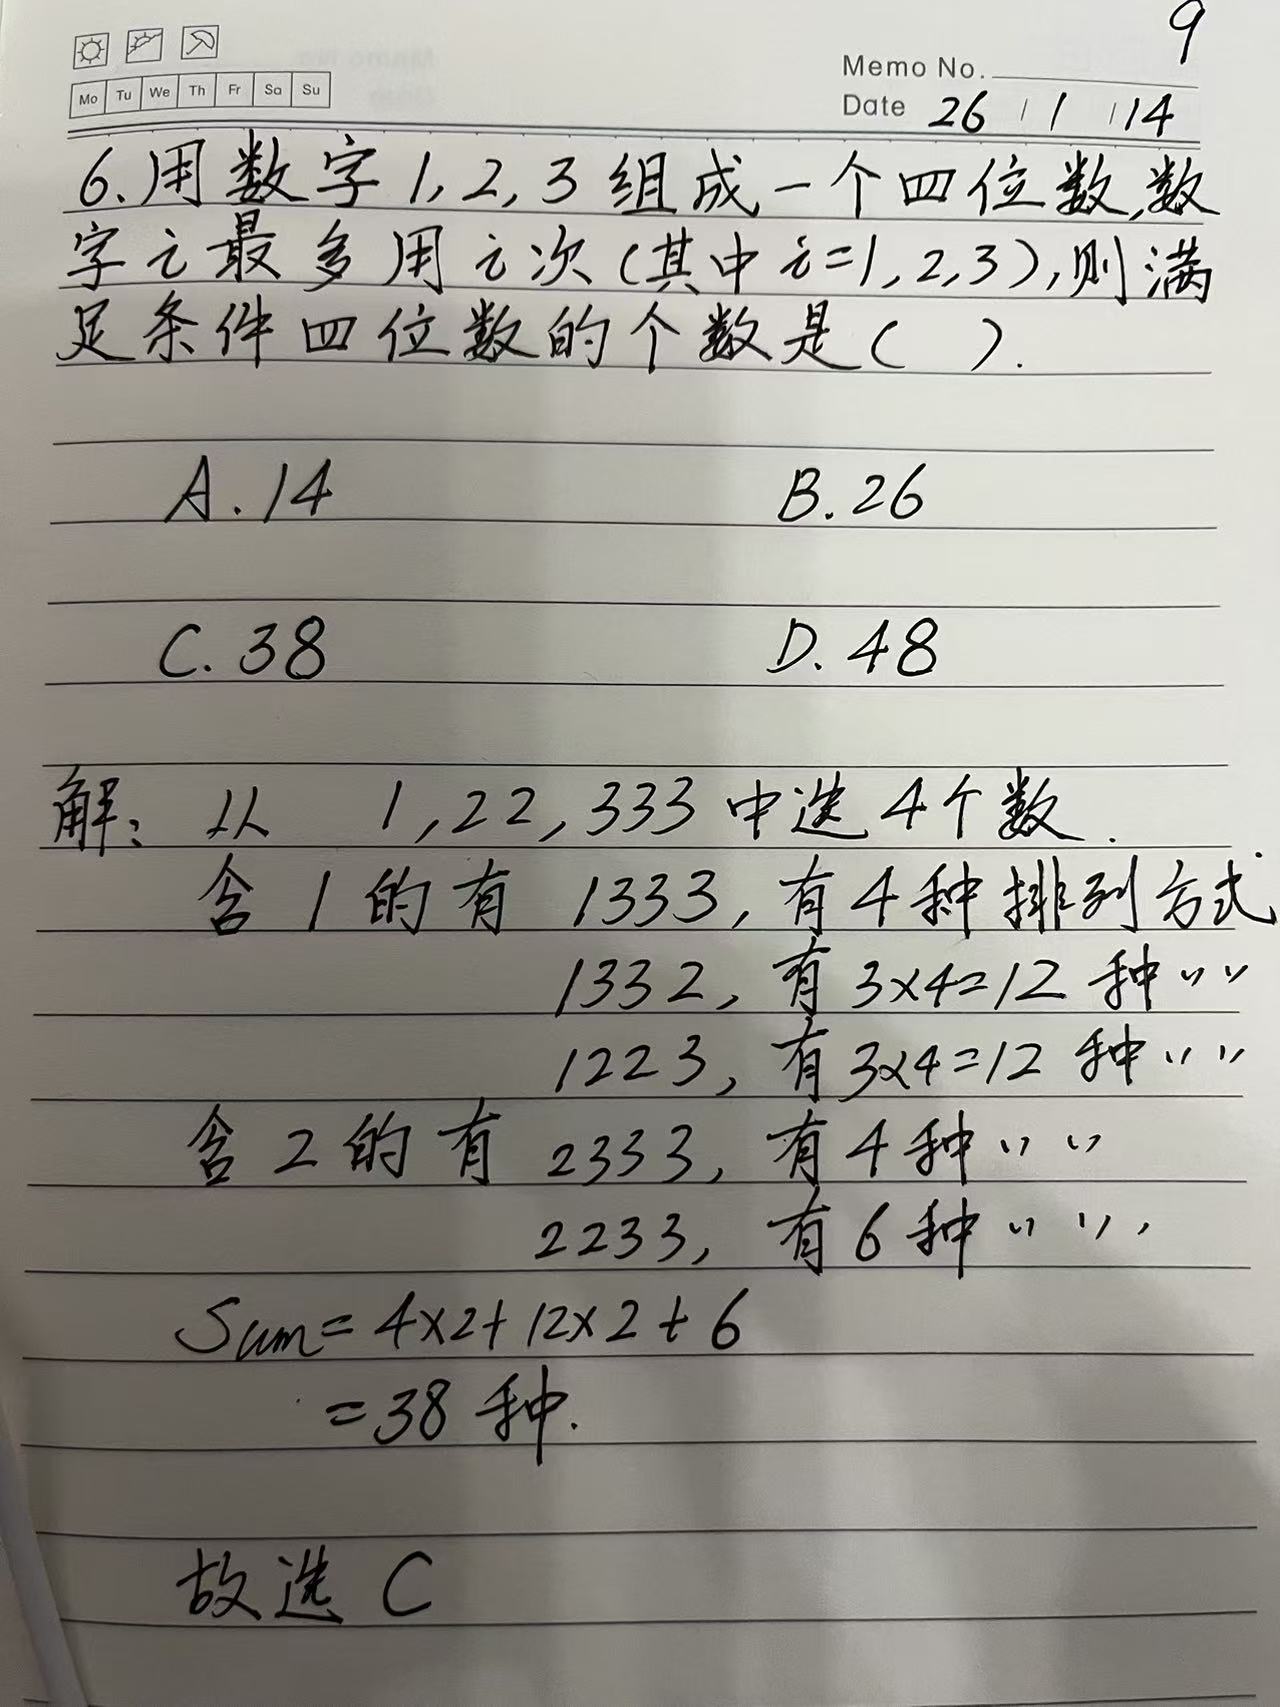 9
Memo No.
Mo Tu We Th Fr Sa Su
Date 26 / 1 / 14
6.用数字1,2,3组成一个四位数,数
字i最多用i次(其中i=1,2,3),则满
足条件四位数的个数是( ).
A.14 B.26
C.38 D.48
解: 从 1,22,333中选4个数.
含1的有 1333,有4种排列方式
1332,有3×4=12种〃〃
1223,有3×4=12种〃〃
含2的有 2333,有4种〃〃
2233,有6种〃〃,
Sum=4×2+12×2+6
=38种.
故选C